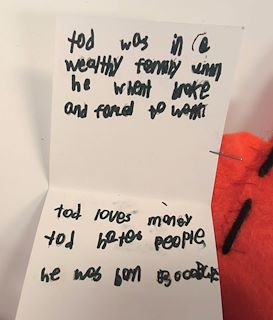 tod was in a
wealthy femmy when
he whent broke
and forced to work
tod loves money
tod hates people
he was born